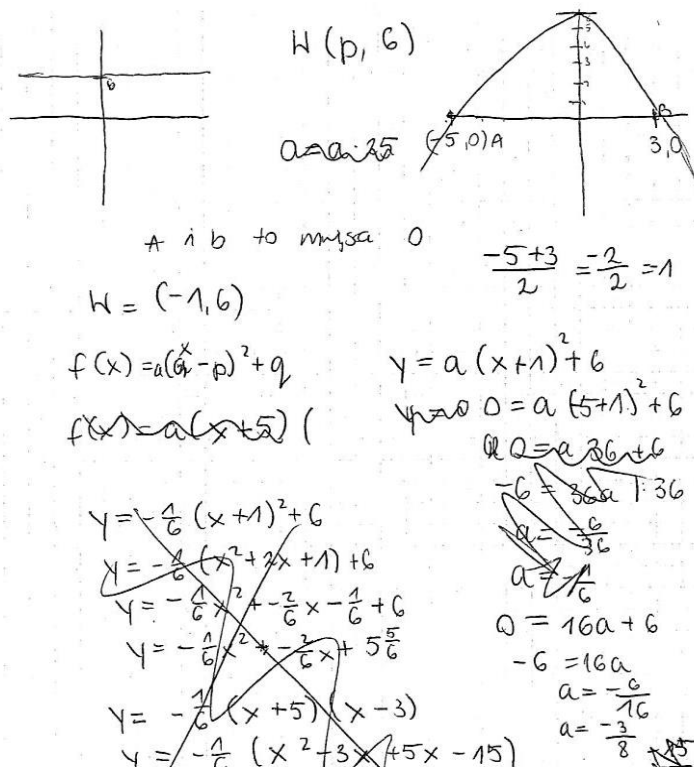 W (p, 6)
a=a·25
(-5,0) A
B
3,0
A i b to miejsca 0
-5+3/2 = -2/2 = 1
W = (-1,6)
f(x) = a(x-p)²+q
f(x)=a(x+5) (
y = a (x+1)²+6
0 = a (-5+1)²+6
0=a 36+6
-6 = 36a |:36
a = -6/36
a = -1/6
0 = 16a + 6
-6 = 16a
a = -6/16
a = -3/8
y = -1/6 (x+1)²+6
y = -1/6 (x²+2x+1)+6
y = -1/6x² + -2/6x - 1/6 + 6
y = -1/6x² + -2/6x + 5 5/6
y = -1/6 (x+5) (x-3)
y = -1/6 (x²-3x+5x-15)